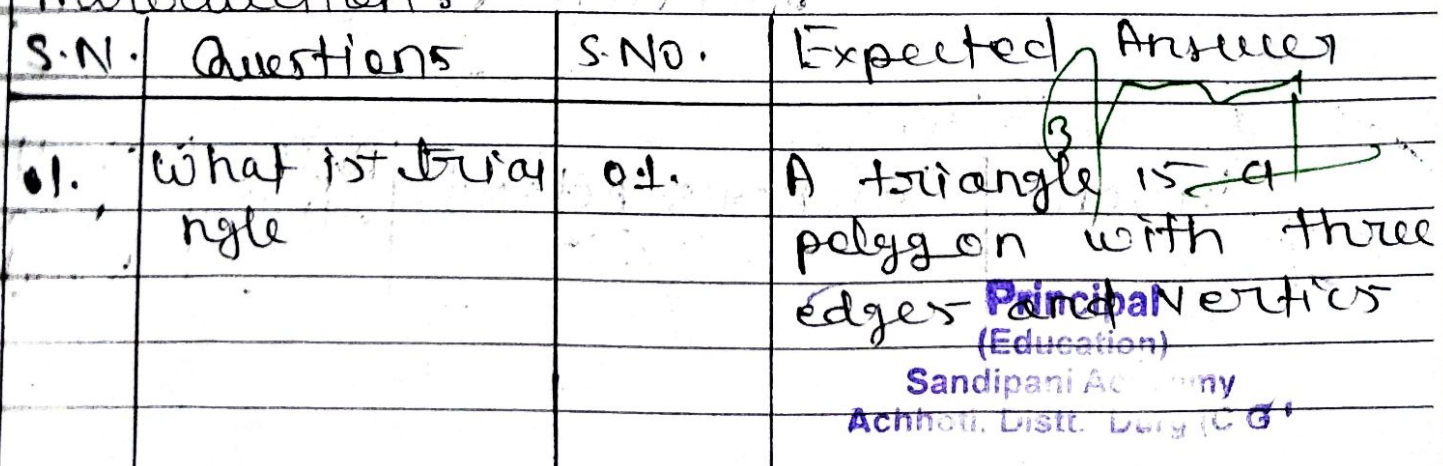 S.N. Questions S.No. Expected Answer
01. What is tria 01. A triangle is a
ngle polygon with three
edges and Vertics
Principal
(Education)
Sandipani
Achhoti, Distt.